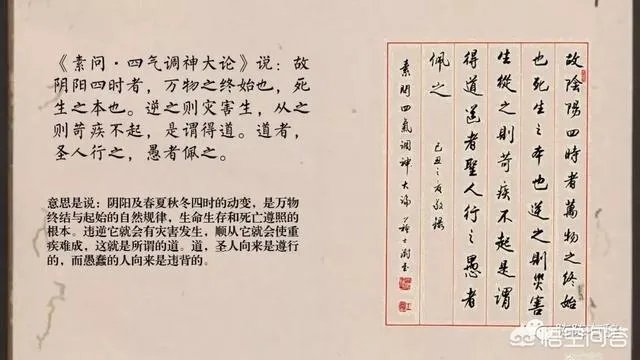 《素问·四气调神大论》说：故
阴阳四时者，万物之终始也，死
生之本也。逆之则灾害生，从之
则苛疾不起，是谓得道。道者，
圣人行之，愚者佩之。
意思是说：阴阳及春夏秋冬四时的动变，是万物
终结与起始的自然规律，生命生存和死亡遵照的
根本。违逆它就会有灾害发生，顺从它就会使重
疾难成，这就是所谓的道。道，圣人向来是遵行
的，而愚蠢的人向来是违背的。
故陰陽四時者萬物之終始
也死生之本也逆之則災害
生從之則苛疾不起是謂
得道道者聖人行之愚者
佩之
己丑之
素問四氣調神大論
悟空问答